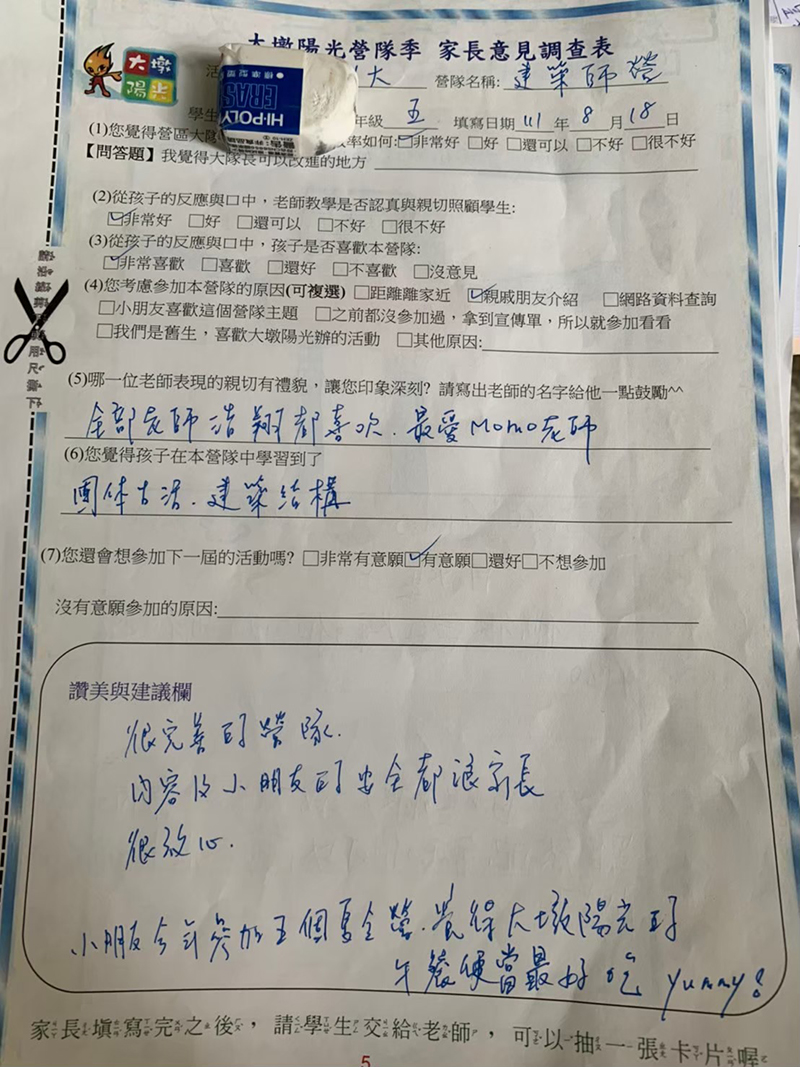 大墩陽光營隊季 家長意見調查表
大墩
陽光
大 營隊名稱: 建築師營
HI-POLY
ERAS
學生 年級 五 填寫日期 111 年 8 月 18 日
(1)您覺得營區大隊 效率如何:☑非常好 □好 □還可以 □不好 □很不好
【問答題】我覺得大隊長可以改進的地方
(2)從孩子的反應與口中，老師教學是否認真與親切照顧學生:
☑非常好 □好 □還可以 □不好 □很不好
(3)從孩子的反應與口中，孩子是否喜歡本營隊:
☑非常喜歡 □喜歡 □還好 □不喜歡 □沒意見
(4)您考慮參加本營隊的原因(可複選) □距離離家近 ☑親戚朋友介紹 □網路資料查詢
□小朋友喜歡這個營隊主題 □之前都沒參加過，拿到宣傳單，所以就參加看看
□我們是舊生，喜歡大墩陽光辦的活動 □其他原因:
(5)哪一位老師表現的親切有禮貌，讓您印象深刻? 請寫出老師的名字給他一點鼓勵^^
全部老師浩翔都喜欢.最愛Momo老師
(6)您覺得孩子在本營隊中學習到了
團体生活.建築結構
(7)您還會想參加下一屆的活動嗎? □非常有意願☑有意願□還好□不想參加
沒有意願參加的原因:
讚美與建議欄
很完善的營隊.
內容及小朋友的安全都讓家長
很放心.
小朋友今年參加五個夏令營.覺得大墩陽光的
午餐便當最好吃 yummy!
家長填寫完之後，請學生交給老師，可以抽一張卡片喔
5